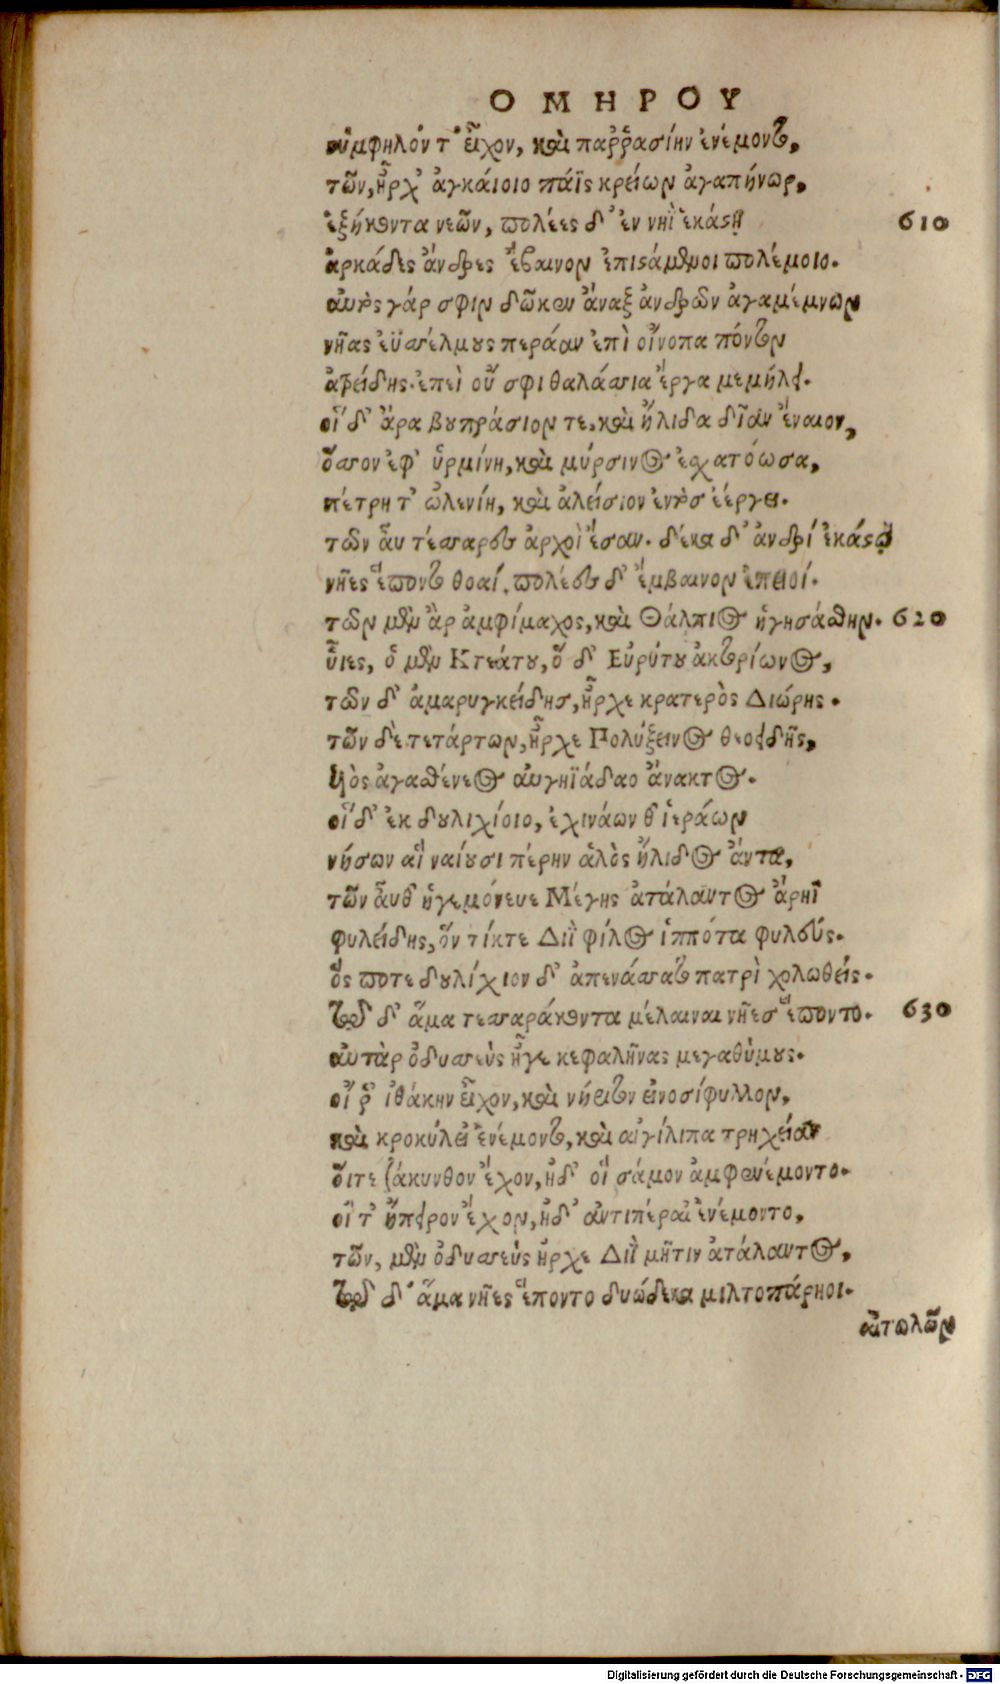 ΟΜΗΡΟΥ
σύμφηλόν τ' εἶχον, καὶ παῤῥασίην ἐνέμοντο,
τῶν, ἦρχ' ἀγκάιοιο πάϊς κρείων ἀγαπήνωρ,
ἑξήκοντα νεῶν, πολέες δ' ἐν νηῒ ἑκάστῃ 610
ἀρκάδες ἄνδρες ἔβαινον ἐπιστάμενοι πολέμοιο.
αὐτὸς γάρ σφιν δῶκεν ἄναξ ἀνδρῶν ἀγαμέμνων
νῆας ἐϋσσέλμους περάαν ἐπὶ οἴνοπα πόντον
ἀτρείδης. ἐπεὶ οὔ σφι θαλάσσια ἔργα μεμήλει.
οἳ δ' ἄρα βουπράσιον τε, καὶ ἤλιδα δῖαν ἔναιον,
ὅσσον ἐφ' ὑρμίνη, καὶ μύρσινος ἐσχατόωσα,
πέτρη τ' ὠλενίη, καὶ ἀλείσιον ἐντὸς ἐέργει.
τῶν αὖ τέσσαρες ἀρχοὶ ἔσαν. δέκα δ' ἀνδρί ἑκάστῳ
νῆες ἕποντο θοαί. πολέες δ' ἔμβαινον ἐπειοί.
τῶν μὲν ἂρ ἀμφίμαχος, καὶ Θάλπιος ἡγησάσθην. 620
ὗιες, ὁ μὲν Κτεάτου, ὅ δ' Εὐρύτου ἀκτορίωνος,
τῶν δ' ἀμαρυγκείδησ, ἦρχε κρατερὸς Διώρης.
τῶν δὲ τετάρτων, ἦρχε Πολύξεινος θεοειδῆς,
ὑὸς ἀγασθένεος αὐγηϊάδαο ἄνακτος.
οἳ δ' ἐκ δουλιχίοιο, ἐχινάων θ' ἱεράων
νήσων αἳ ναίουσι πέρην ἁλὸς ἤλιδος ἄντα,
τῶν αὖθ' ἡγεμόνευε Μέγης ἀτάλαντος ἄρηϊ
φυλείδης, ὅν τίκτε Διῒ φίλος ἱππότα φυλεύς.
ὅς ποτε δουλίχιον δ' ἀπενάσσατο πατρὶ χολωθείς.
τῷ δ' ἅμα τεσσαράκοντα μέλαιναι νῆεσ ἕποντο. 630
αὐτὰρ ὀδυσσεὺς ἦγε κεφαλῆνας μεγαθύμους.
οἵ ῥ' ἰθάκην εἶχον, καὶ νήριτον εἰνοσίφυλλον,
καὶ κροκύλει' ἐνέμοντο, καὶ αἰγίλιπα τρηχεῖαν
οἵτε ζάκυνθον ἔχον, ἠδ' οἳ σάμον ἀμφενέμοντο.
οἵ τ' ἤπειρον ἔχον, ἠδ' ἀντιπέραι' ἐνέμοντο,
τῶν, μὲν ὀδυσσεὺς ἦρχε Διῒ μῆτιν ἀτάλαντος,
τῷ δ' ἅμα νῆες ἕποντο δυώδεκα μιλτοπάρηοι.
αἰτωλῶν
Digitalisierung gefördert durch die Deutsche Forschungsgemeinschaft - DFG